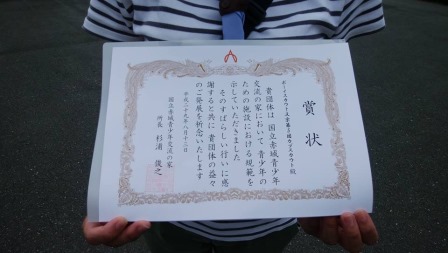 賞状
ボーイスカウト太田第2団カブスカウト 殿
貴団体は 国立赤城青少年
交流の家において 青少年の
ための施設における規範を
示していただきました
そのすばらしい行いに感
謝すると共に 貴団体の益々
のご発展を祈念いたします
平成二十九年八月十三日
国立赤城青少年交流の家
所長 杉浦 俊之